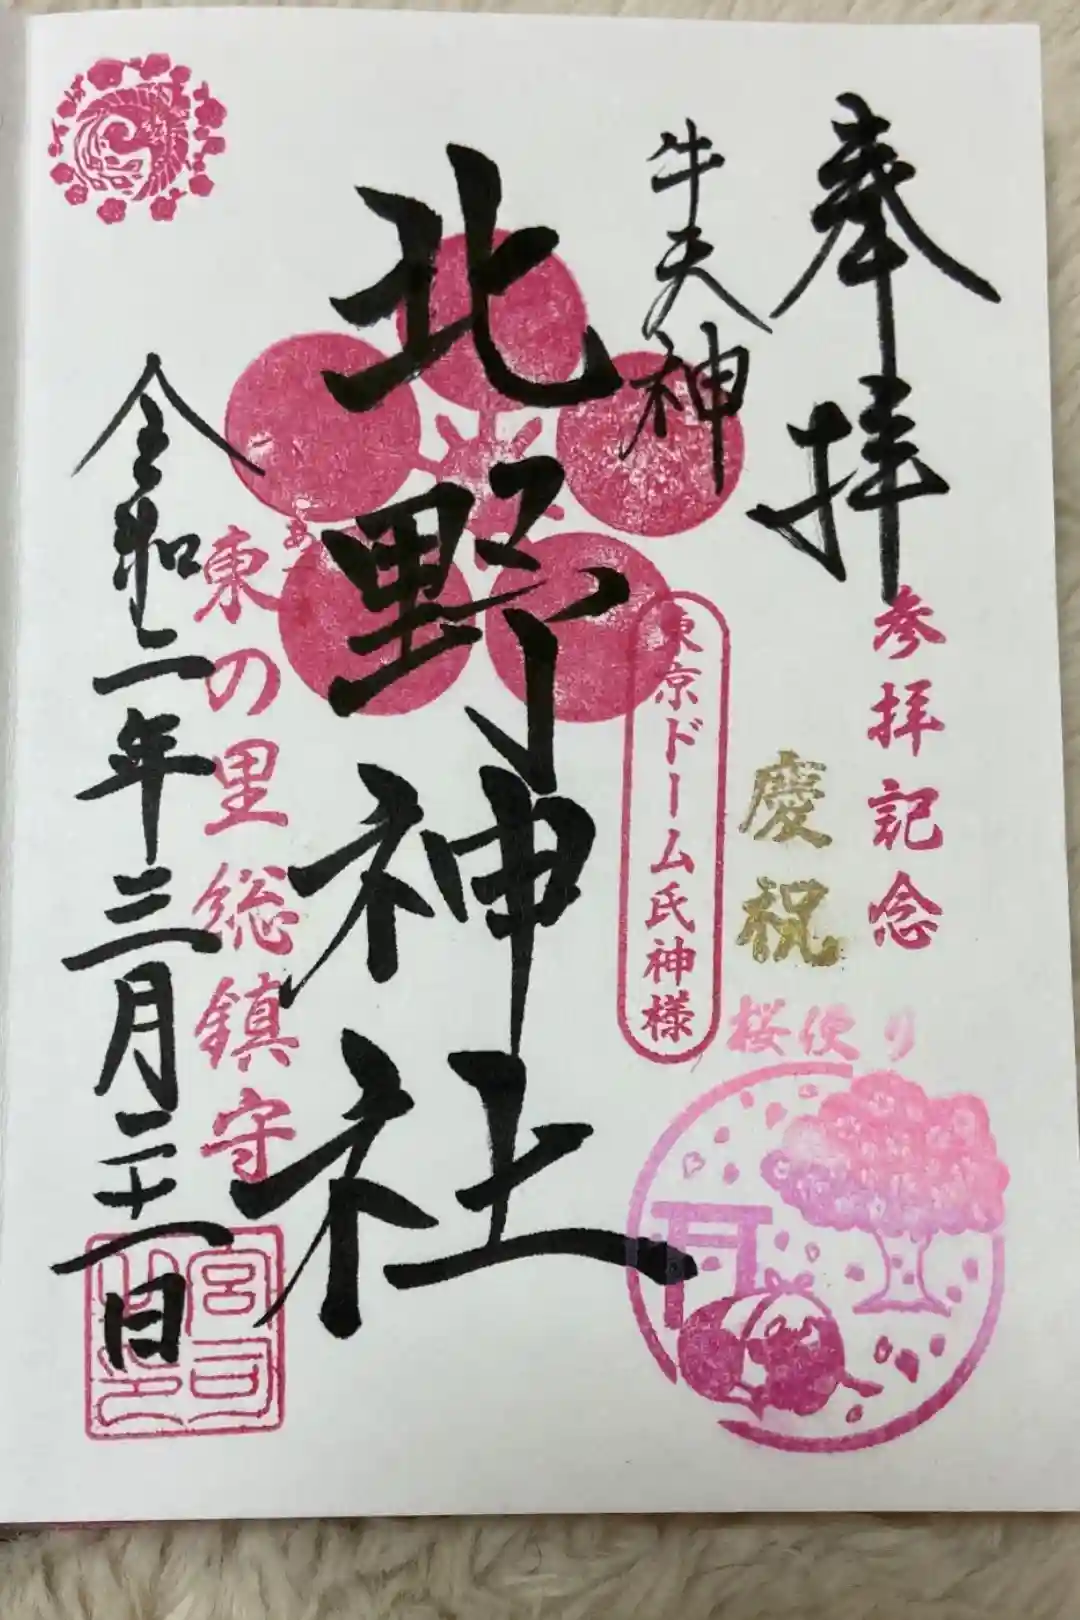 奉拝
参拝記念
慶祝
桜便り
牛天神
東京ドーム氏神様
北野神社
あづま
東の里総鎮守
令和二年三月二十一日
宮司之印